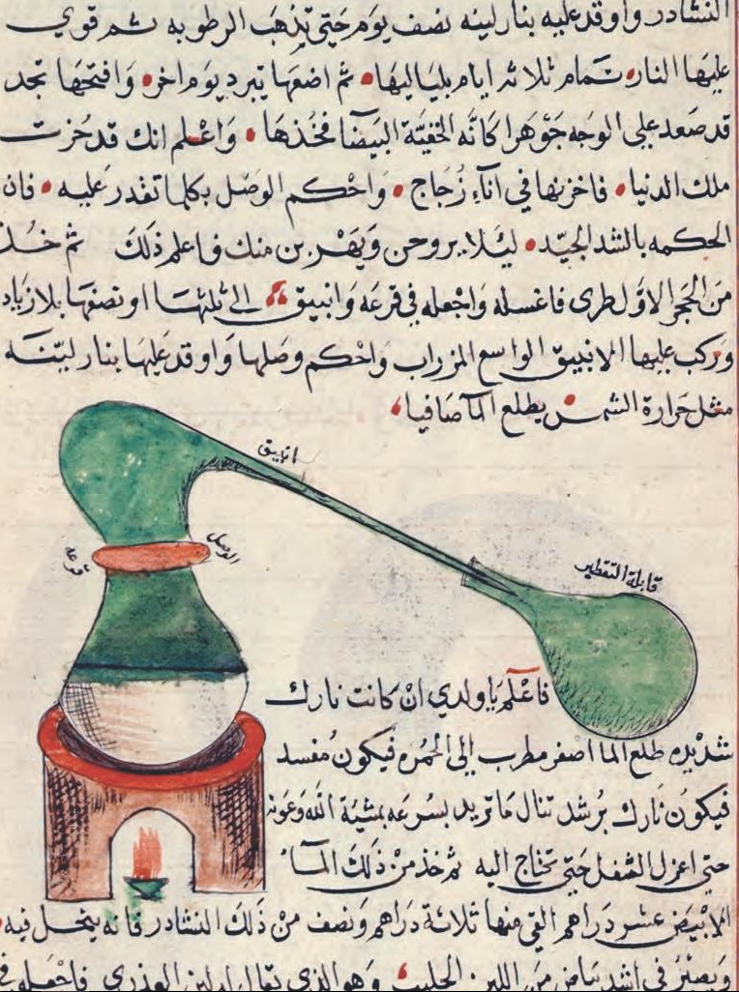 النشادر واوقد عليه بنار لينه نصف يوم حتى تذهب الرطوبه ثم قوي
عليها النار تمام ثلاثه ايام بلياليها ثم اضعها تبرد يوم اخر وافتحها تجد
قد صعد على الوجه جوهرا كانه البيضا فخذها واعلم انك قد حزت
ملك الدنيا فاخزنها في اناء زجاج واحكم الوصل بكلما تقدر عليه فان
الحكمه بالشد الجيد ليلا يروحن ويهربن منك فاعلم ذلك ثم خذ
من الحجر الاول طرى فاغسله واجعله في قرعه وانبيق الى ثلثها او نصفها بلا زياد
وركب عليها الانبيق الواسع المزراب واحكم وصلها واوقد عليها بنار لينه
مثل حرارة الشمس يطلع الما صافيا
انبيق
الوصل
قرعه
قابلة التقطير
فاعلم يا ولدي ان كانت نارك
شديده طلع الما اصفر مطرب الى الحمره فيكون مفسد
فيكون نارك برشد تنال ما تريد بسرعه بمشية الله وعونه
حتى اعزل الثفل حتى تحتاج اليه ثم خذ من ذلك الما
الابيض عشر دراهم القي منها ثلاثة دراهم ونصف من ذلك النشادر فانه ينحل فيه
ويصير في اشد بياض من اللبن الحليب وهو الذي يقال له لبن العذرى فاجعله في